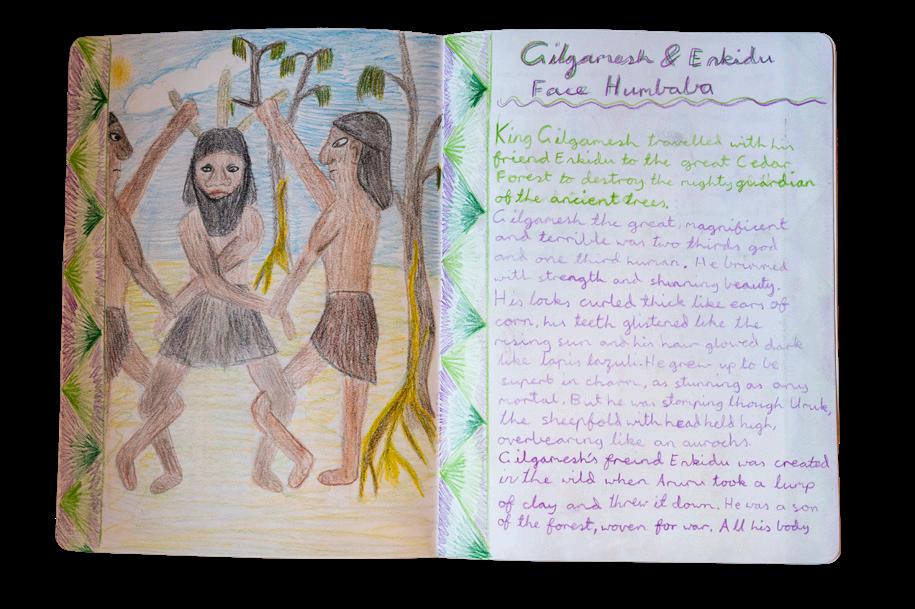 Gilgamesh & Enkidu
Face Humbaba
King Gilgamesh travelled with his
friend Enkidu to the great Cedar
Forest to destroy the mighty guardian
of the ancient trees.
Gilgamesh the great, magnificent
and terrible was two thirds god
and one third human. He brimmed
with strength and stunning beauty.
His locks curled thick like ears of
corn, his teeth glistened like the
rising sun and his hair glowed dark
like lapis lazuli. He grew up to be
superb in charm, as stunning as any
mortal. But he was stomping though Uruk,
the sheepfold with head held high,
overbearing like an aurochs.
Gilgamesh's freind Enkidu was created
in the wild when Aruru took a lump
of clay and threw it down. He was a son
of the forest, woven for war. All his body